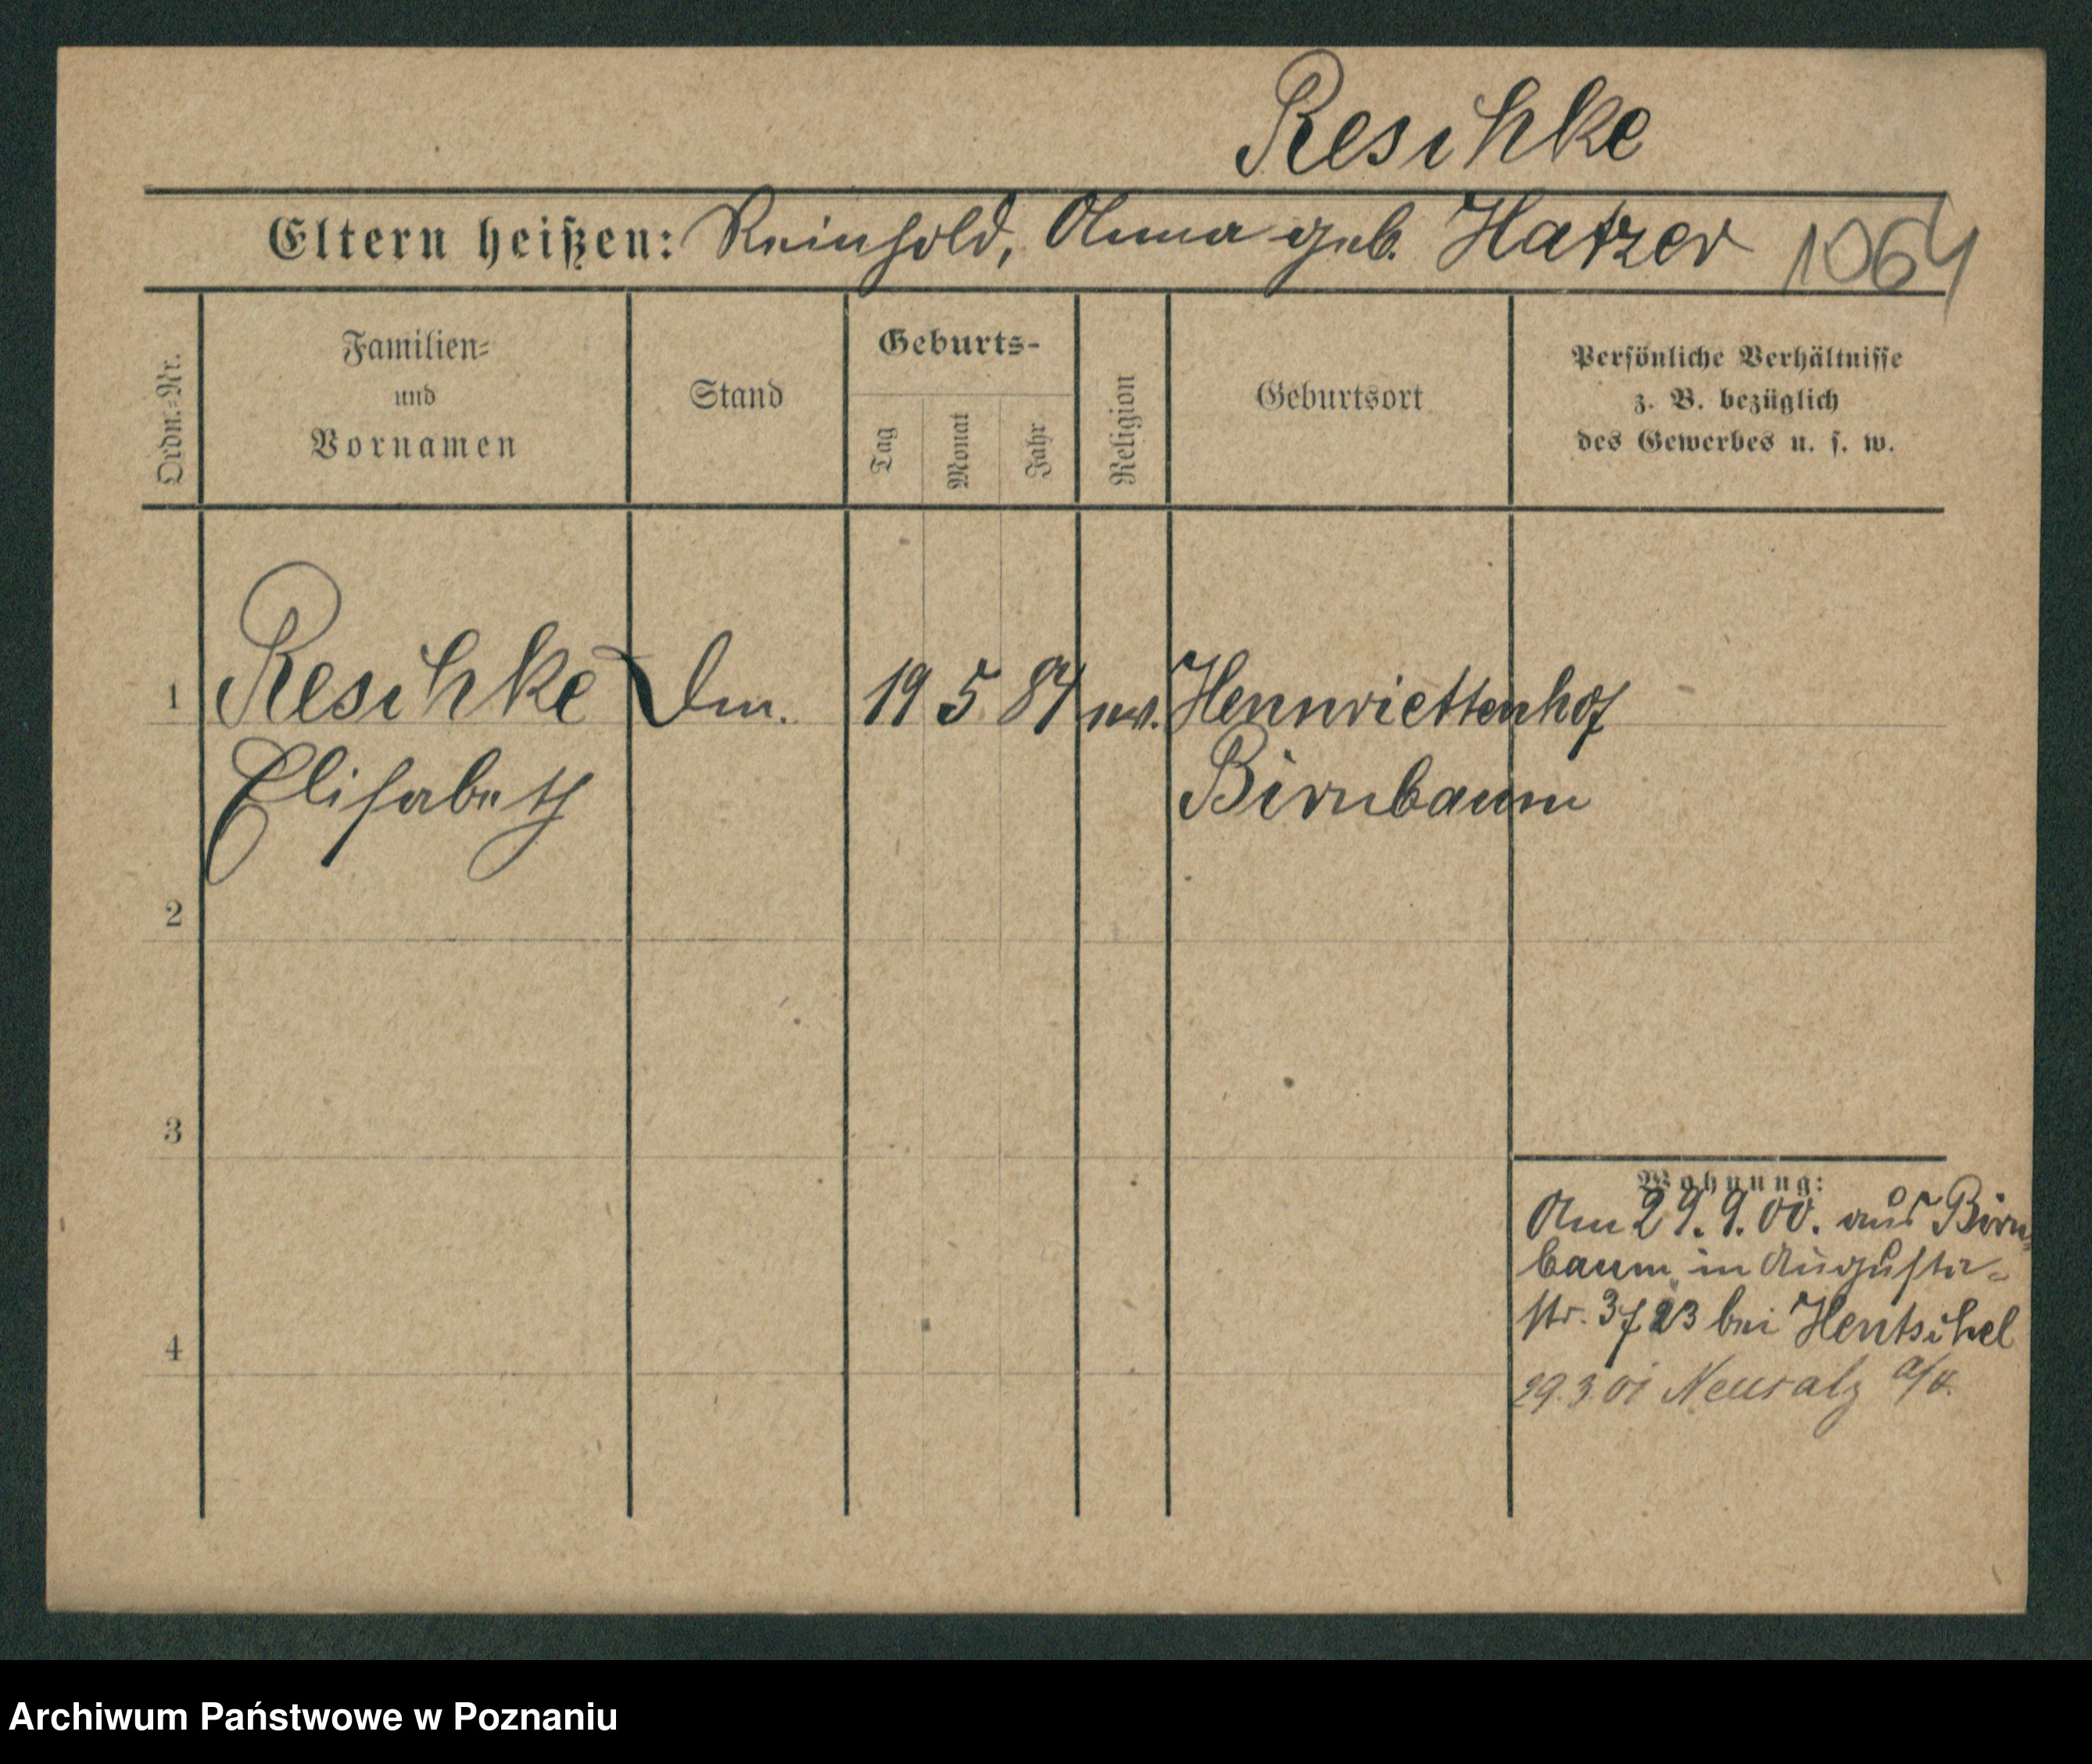 Reschke
Eltern heißen: Reinhold, Anna geb. Hatzer 1064
Ordn.=Nr.
Familien=
und
Vornamen
Stand
Geburts-
Tag
Monat
Jahr
Religion
Geburtsort
Persönliche Verhältnisse
z. B. bezüglich
des Gewerbes u. s. w.
1 Reschke 19 5 84 Hennriettenhof
Elisabeth Birnbaum
2
3
4
Wohnung:
Am 29.9.00. aus Birn=
baum in Augusta-
str. 3 23 bei Hentschel
29.3.01 Neusalz a/O.
Archiwum Państwowe w Poznaniu